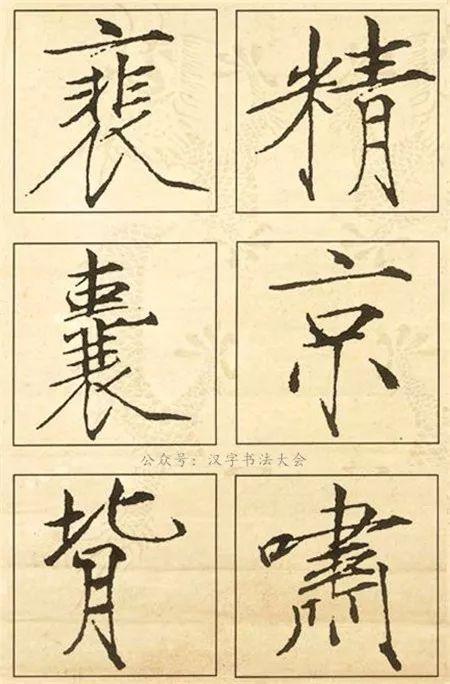 裵 精
囊 京
公众号：汉字书法大会
背 嘯